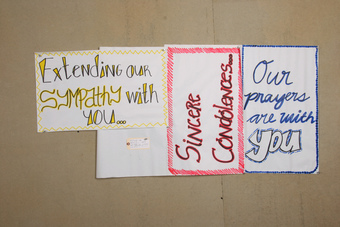 Extending our
SYMPATHY with
YOU...
Sincere
Condolances...
Our
prayers
are with
you